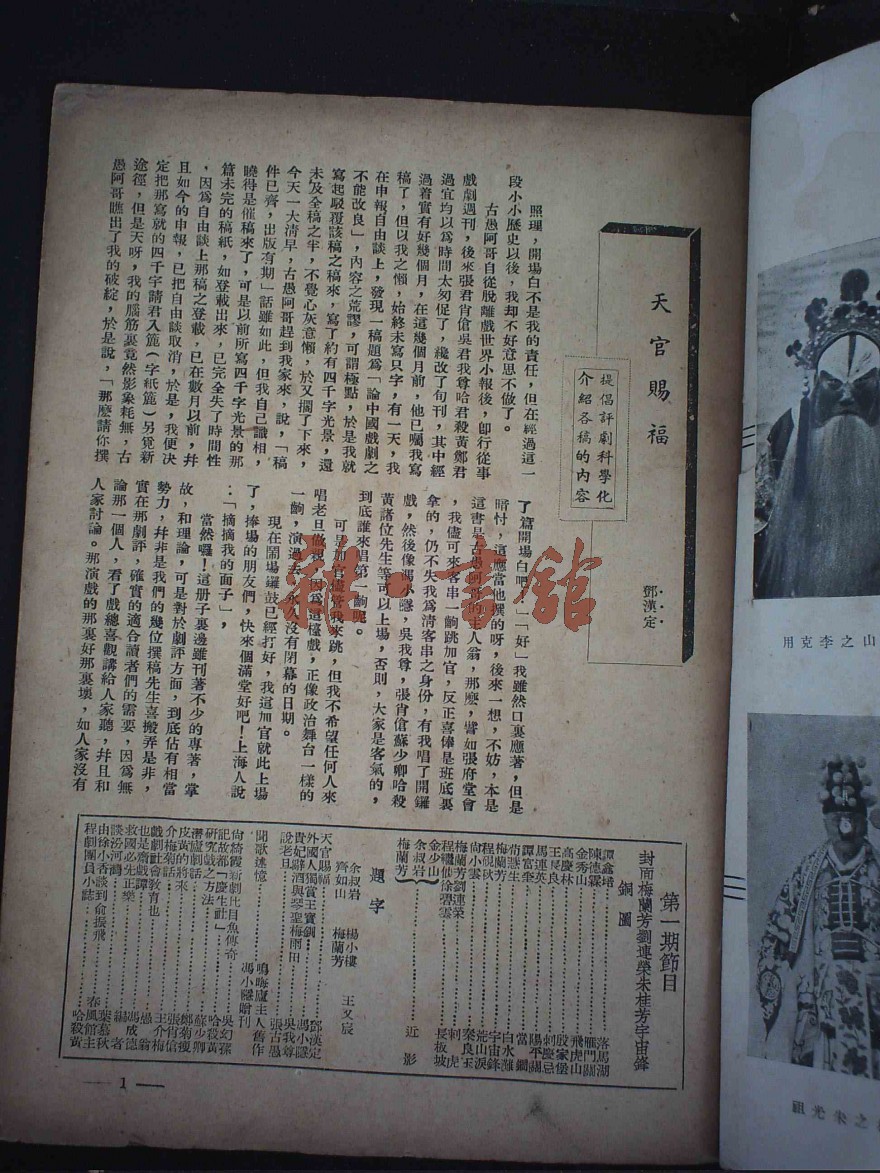 天官賜福
提倡評劇科學化
介紹各稿的內容
鄧漢定
照理，開場白不是我的責任，但在經過這一
段小小歷史以後，我却不好意思不做了。
古愚阿哥自從脫離戲世界小報後，卽行從事
戲劇週刊，後來張君肖傖吳君我尊哈君殺黃鄭君
過宜均以爲時間太匆促了，纔改了旬刊，其中經
過着實有好幾個月，在這幾個月前，他已囑我寫
稿了，但以我之懶，始終未寫只字，有一天，我
在申報自由談上，發現一稿題爲「論中國戲劇之
不能改良」，內容之荒謬，可謂極點，於是我就
寫起駁覆該稿之稿來，寫了約有四千字光景，還
未及全稿之半，不覺心灰意懶，於又擱了下來，
今天一大清早，古愚阿哥趕到我家來，說，「稿
件已齊，出版有期」話雖如此，但我自己識相，
曉得是催稿來了，可是以前所寫四千字光景的那
篇未完的稿紙，如登載出來，已完全失了時間性
，因爲自由談上那稿之登載，已在數月以前，幷
且如今的申報，已把自由談取消，於是，我便決
定把那寫就的四千字請君入簏（字紙簏）另覓新
途徑，但是天呀，我的腦筋裏竟然影象耗無，古
愚阿哥瞧出了我的破綻，於是說，「那麽請你撰
了篇開場白吧。」「好」我雖然口裏應著，但是
暗忖，這應當他撰的呀，後來一想，不妨，本是
這書是古愚阿哥的主人翁，那麽，譬如張府堂會
，我儘可來客串一齣跳加官，反正喜俸是班底裏
拿的，仍不失我爲清客串之身份，有我唱了開鑼
戲，然後像馮小隱，吳我尊，張肖傖蘇少卿哈殺
黃諸位先生等可以上場，否則，大家是客氣的，
到底誰來唱第一齣呢。
可是加官儘管我來跳，但我不希望任何人來
唱老旦做親，因爲這檯戲，正像政治舞台一樣的
一齣，演過去，永久沒有閉幕的日期。
現在鬧場鑼鼓已經打好，我這加官就此上場
了，捧場的朋友們，快來個滿堂好吧！上海人說
：「摘摘我的面子」，
當然囉！這册子裏邊雖刊著不少的專著，掌
故，和理論，可是對於劇評方面，到底佔有相當
勢力，幷非是我們的幾位撰稿先生喜搬弄是非，
實在那劇評，確實的適合讀者們的需要，因爲無
論那一個人，看了戲總喜觀講給人家聽，幷且和
人家討論。那演戲的那裏好那裏壞，如人家沒有
第一期節目
封面梅蘭芳劉連榮朱桂芳宇宙鋒
銅圖
譚鑫培 落馬湖
陳德霖 雁門關
金秀山 飛虎山
高慶林 殷家堡
王長良 刺慶忌
馬連英 陽平關
譚富奎 當鐧
荀慧生 白水灘
梅蘭芳 宇宙鋒
程硯秋 荒山淚
尚小雲 秦良玉
梅蘭芳劉連榮 刺虎
程繼仙徐碧雲
金少山 長板坡
余叔岩
梅蘭芳 近影
題字
余叔岩 楊小樓 王又宸
齊如山 梅蘭芳
天官賜福 鄧漢定
外國人獨賞王寶釧 馮小隱
貴妃醉酒與琴聖梅雨田 吳我尊
說老旦 張古愚
聞歌述憶 鳴晦廬主人舊作
馮小隱贈刊
尙綺霞新劇比目魚傳奇 吳幻蓀
記故都「慶生社」 哈殺黃
研究戲之方法 蘇少卿
潛廬劇話 鄭菊瘦
皮黃的將來 張肖傖
介梅菊話 王介梅
戲劇社會教育也 愚翁
也是齋戲譚 馮成德
救國必先正樂 編者
談汾河灣 葉慕秋
由徐小香談到俞振飛 春風館主
程劇團員小誌 哈殺黃
— 1 —
雜·書館
山之李克用
之朱光祖